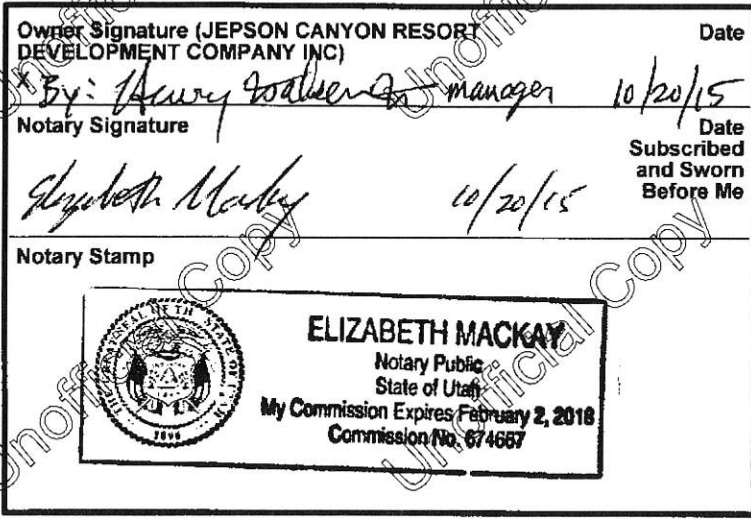 Owner Signature (JEPSON CANYON RESORT Date
DEVELOPMENT COMPANY INC)
x By: Henry manager 10/20/15
Notary Signature Date
Subscribed
and Sworn
Before Me
Elizabeth Mackay 10/20/15
Notary Stamp
THE GREAT SEAL OF THE STATE OF UTAH
1896
ELIZABETH MACKAY
Notary Public
State of Utah
My Commission Expires February 2, 2018
Commission No. 674667
Unofficial Copy
Unofficial Copy
Unofficial Copy
Unofficial Copy